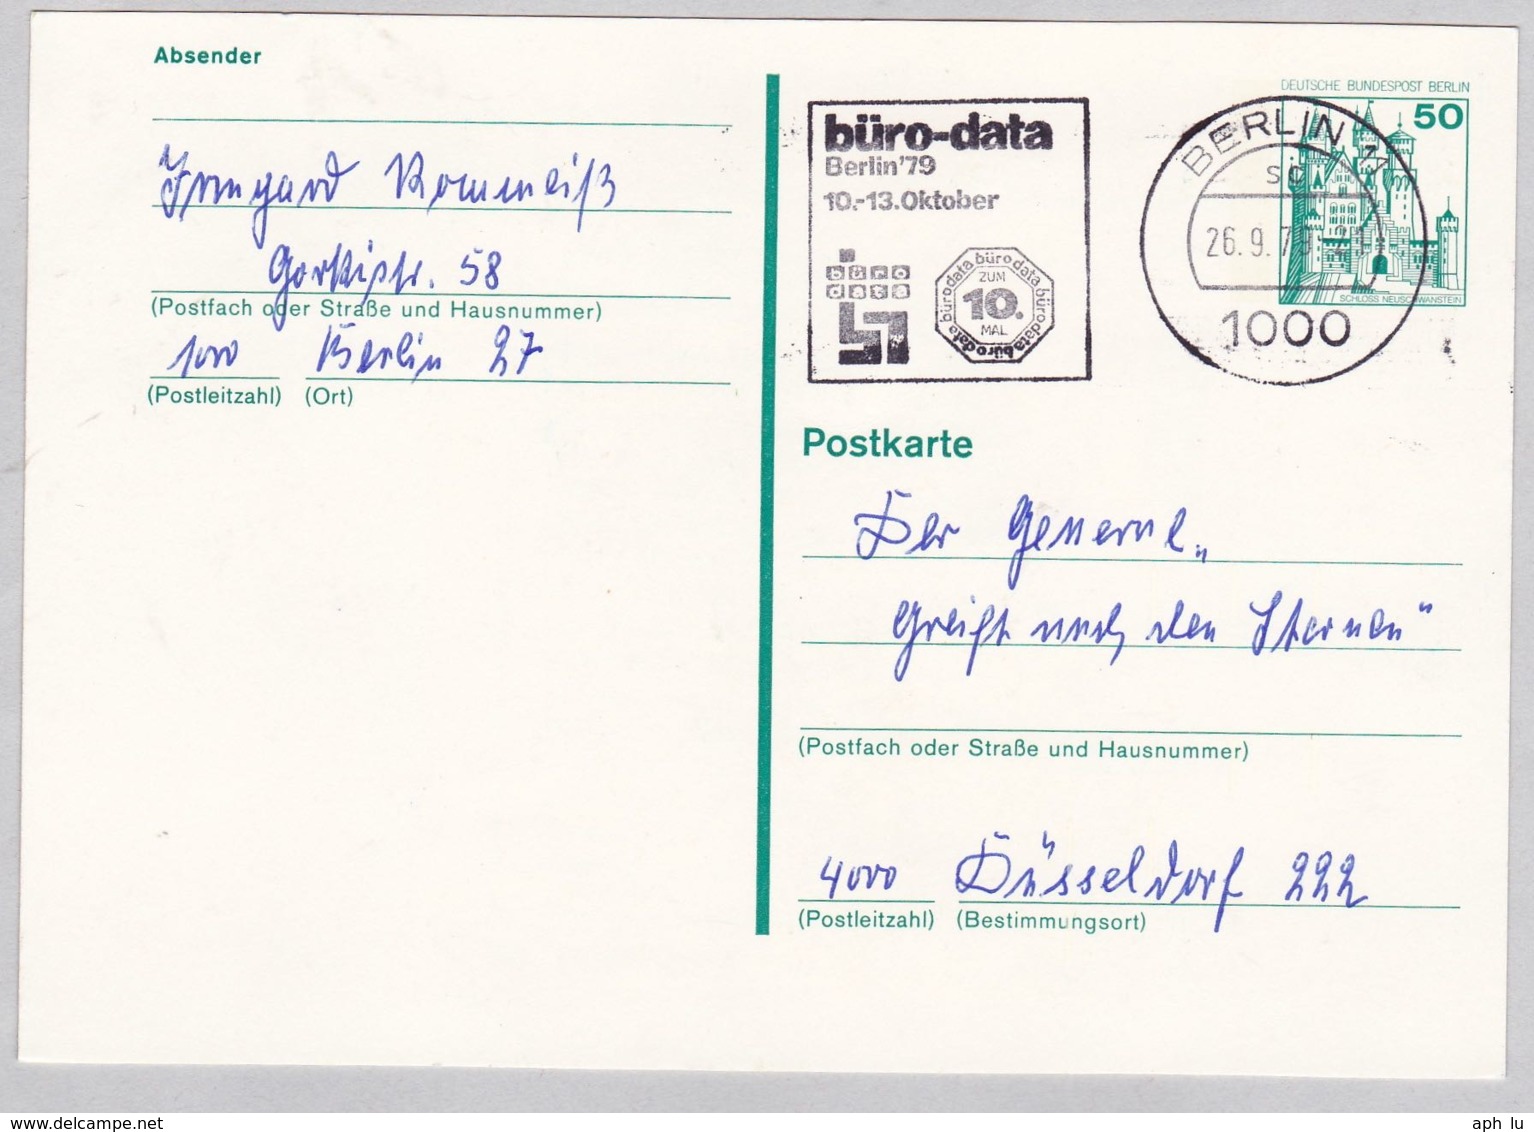 Absender
Irmgard Rommeiß
Gorkistr. 58
(Postfach oder Straße und Hausnummer)
1000 Berlin 27
(Postleitzahl) (Ort)
büro-data
Berlin '79
10.-13. Oktober
büro
data
bürodata bürodata bürodata bürodata
ZUM
10.
MAL
BERLIN 11
sc
26.9.79-21
1000
DEUTSCHE BUNDESPOST BERLIN
50
SCHLOSS NEUSCHWANSTEIN
Postkarte
Der General„
Greift nach den Sternen“
(Postfach oder Straße und Hausnummer)
4000 Düsseldorf 222
(Postleitzahl) (Bestimmungsort)
www.delcampe.net
aph_lu